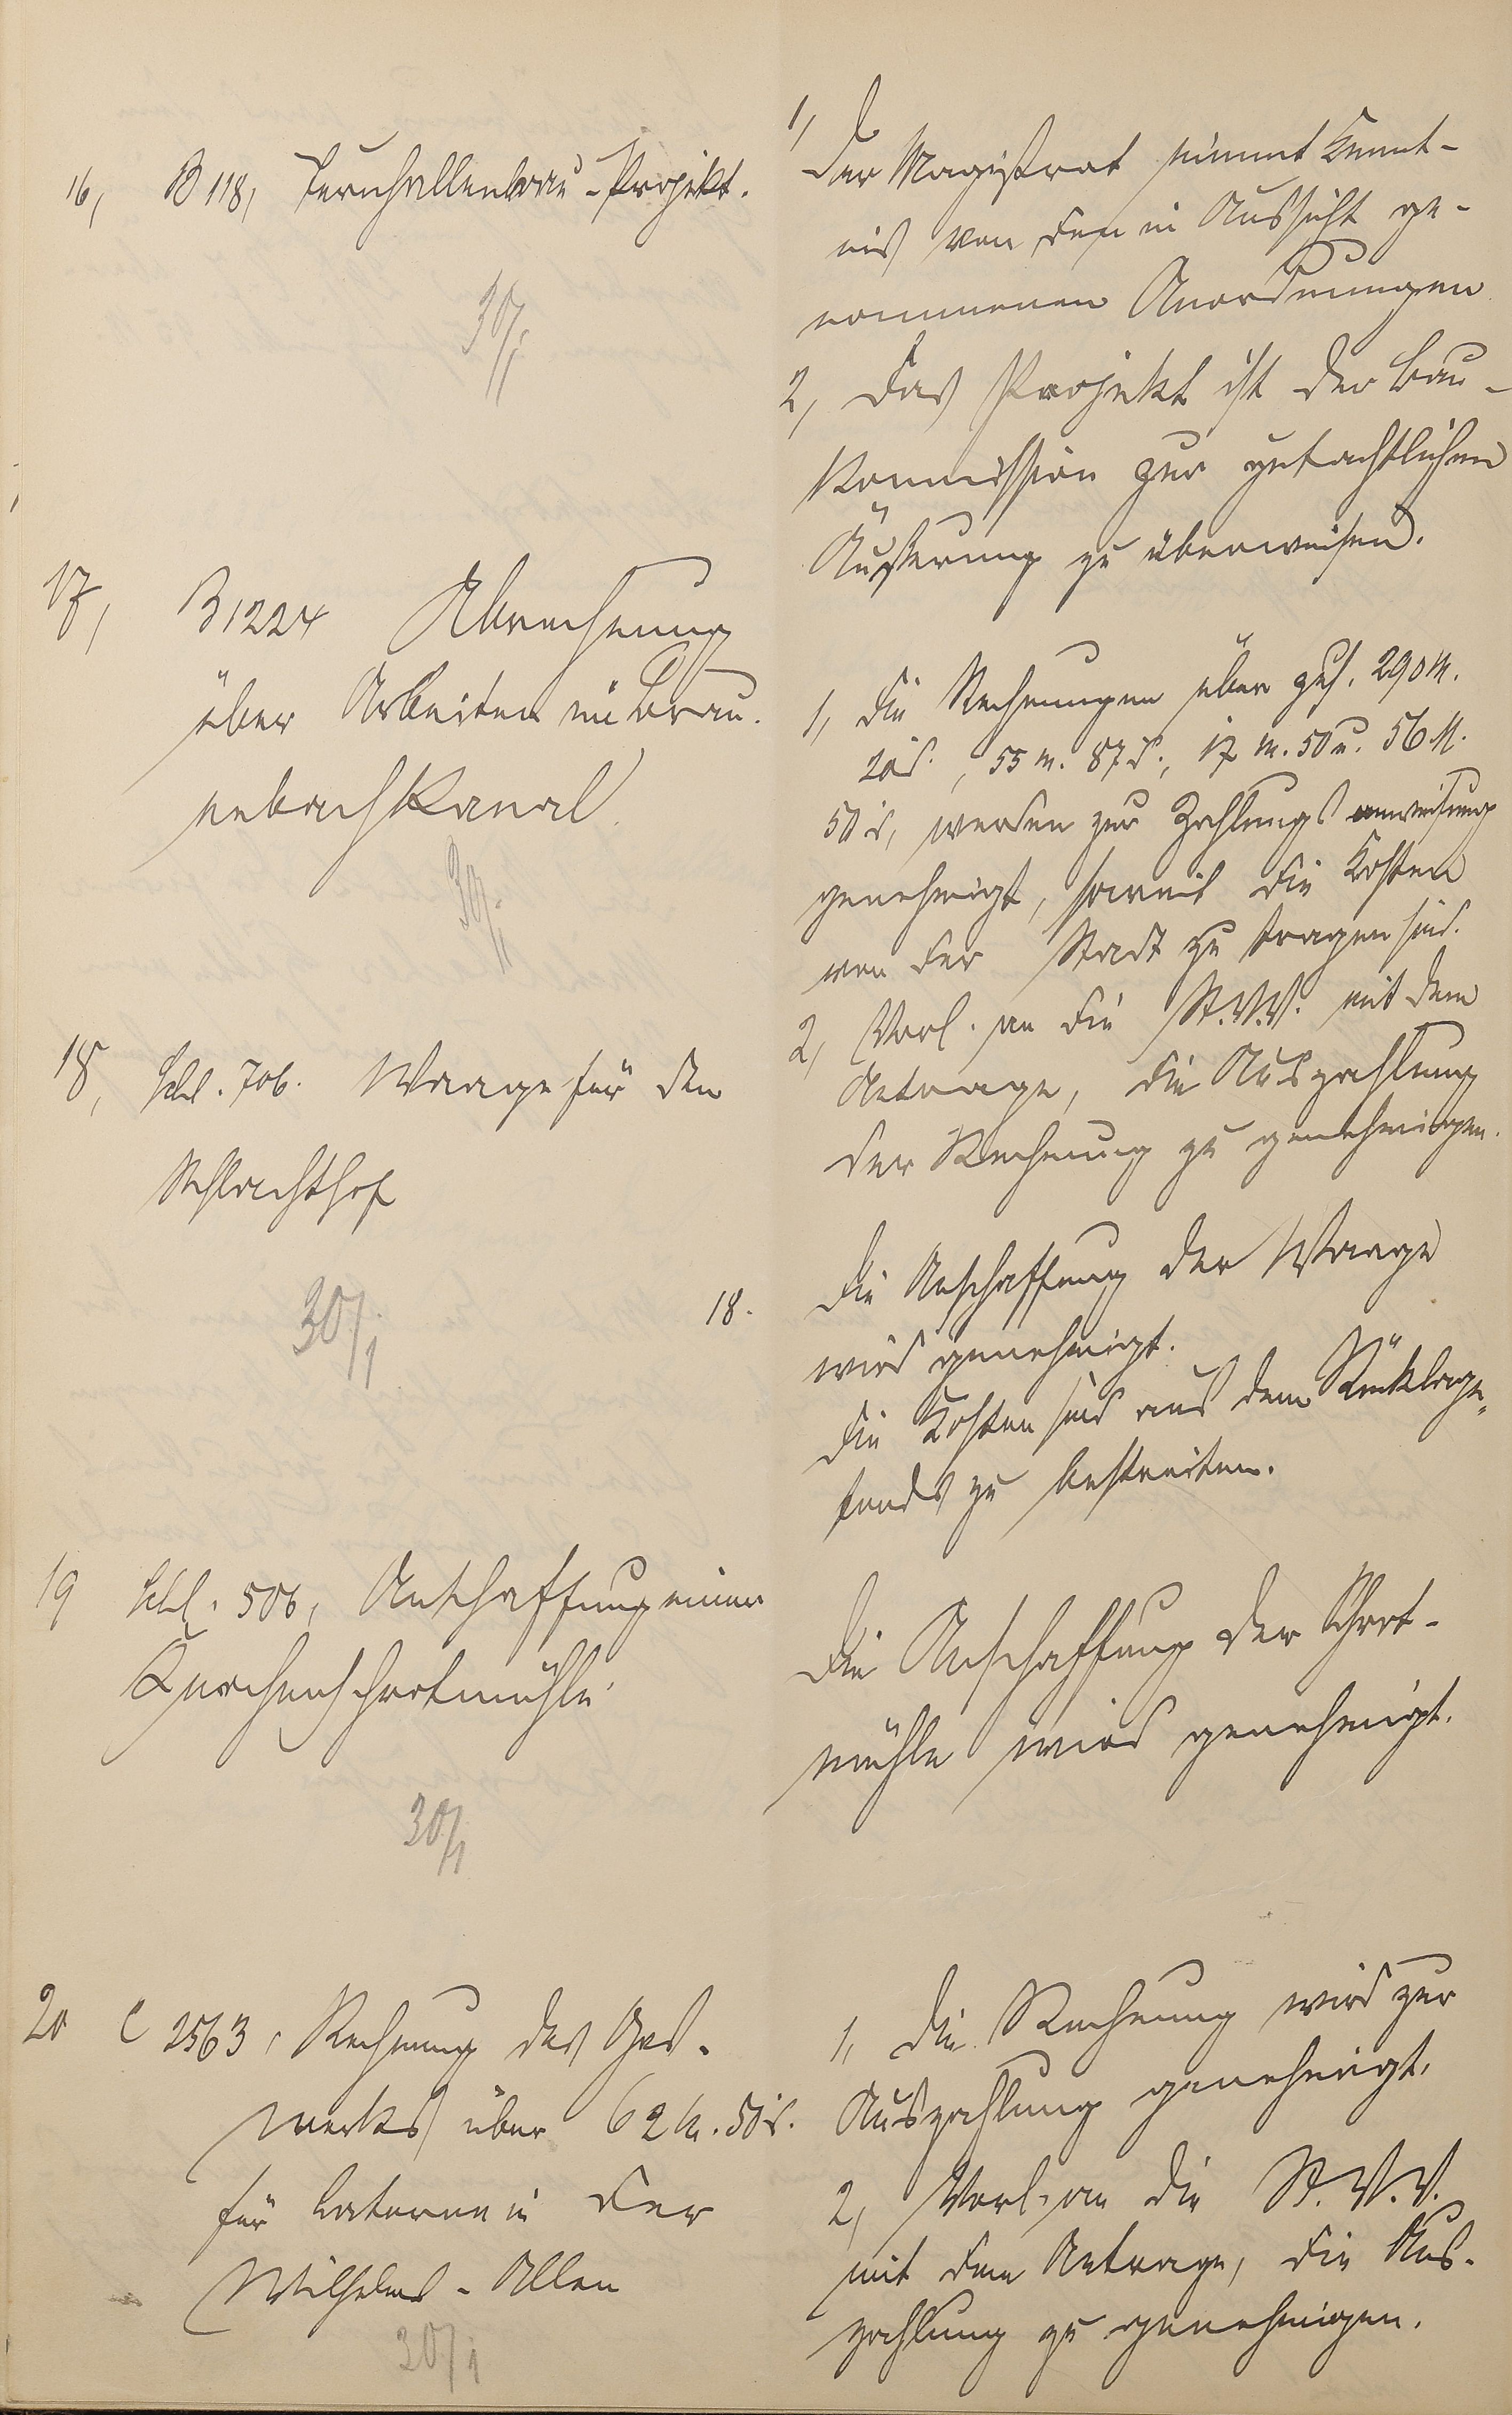 16, B 118, Turnhallenbau-Projekt.
30/1
1, Der Magistrat nimmt Kennt-
nis von den in Aussicht ge-
nommenen Anordnungen
2, Das Projekt ist der Bau-
Kommission zur gutachtlichen
Äußerung zu überweisen.
17, B 1224 Abrechnung
über Arbeiten im Brau-
nebachkanal
30/1
1, Die Rechnungen über 290 M.
20 d., 55 M. 87 d., 17 M. 50 u. 56 M.
50 d, werden zur Zahlungsanweisung
genehmigt, soweit die Kosten
von der Stadt zu tragen sind.
2, Vorl. an die St.V.V. mit dem
Antrage, die Auszahlung
der Rechnung zu genehmigen.
18, Schl. 706. Waage für den
Schlachthof
30/1
18. Die Anschaffung der Waage
wird genehmigt.
Die Kosten sind aus dem Rücklage-
fonds zu bestreiten.
19 Schl. 506, Anschaffung einer
Knochenschrotmühle
30/1
Die Anschaffung der Schrot-
mühle wird genehmigt.
20 C 2563, Rechnung des Gas-
werks über 62 M. 50 d.
für Laterne in der
Wilhelms-Allee
30/1
1, Die Rechnung wird zur
Auszahlung genehmigt.
2, Vorl. an die St.V.V.
mit dem Antrage, die Aus-
zahlung zu genehmigen.